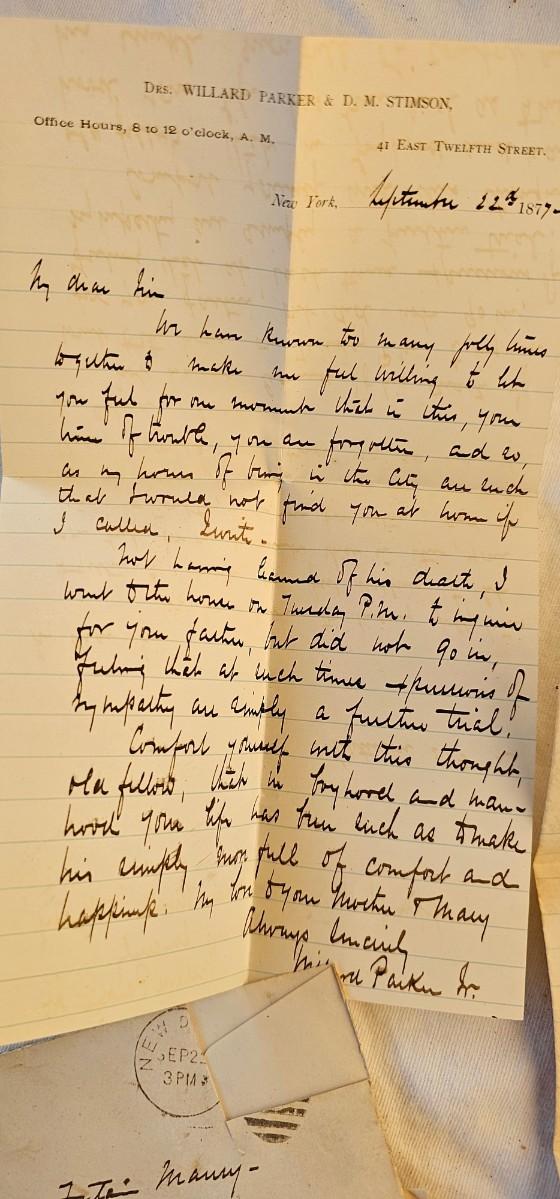 Drs. WILLARD PARKER & D. M. STIMSON,
Office Hours, 8 to 12 o'clock, A. M.
41 East Twelfth Street.
New York, September 22d 1877-
My dear Jim
We have known too many jolly times
together to make me feel willing to let
you feel for one moment that in this, your
time of trouble, you are forgotten, and so,
as my hours of being in the City are such
that I would not find you at home if
I called, I write-
Not having learned of his death, I
went to the house on Tuesday P.M. to inquire
for your father, but did not go in,
feeling that at such times expressions of
sympathy are simply a further trial.
Comfort yourself with this thought,
old fellow, that in boyhood and man-
hood your life has been such as to make
his simply more full of comfort and
happiness. My love to your Mother & Mary
Always Sincerely
Willard Parker Jr.
NEW
SEP 2
3 PM
Maury-